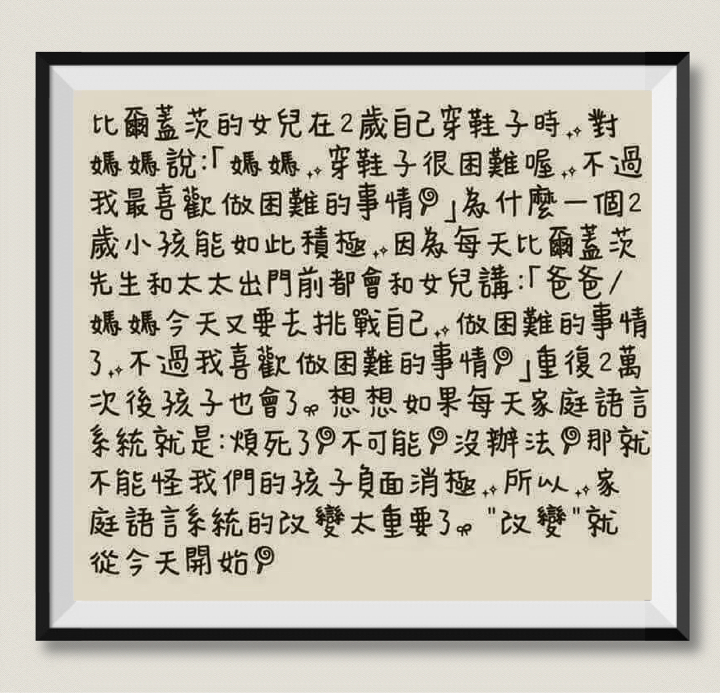 比爾蓋茨的女兒在2歲自己穿鞋子時,對
媽媽說:「媽媽,穿鞋子很困難喔,不過
我最喜歡做困難的事情!」為什麼一個2
歲小孩能如此積極,因為每天比爾蓋茨
先生和太太出門前都會和女兒講:「爸爸/
媽媽今天又要去挑戰自己,做困難的事情
了,不過我喜歡做困難的事情!」重復2萬
次後孩子也會了。想想如果每天家庭語言
系統就是:煩死了!不可能!沒辦法!那就
不能怪我們的孩子負面消極,所以,家
庭語言系統的改變太重要了。"改變"就
從今天開始!